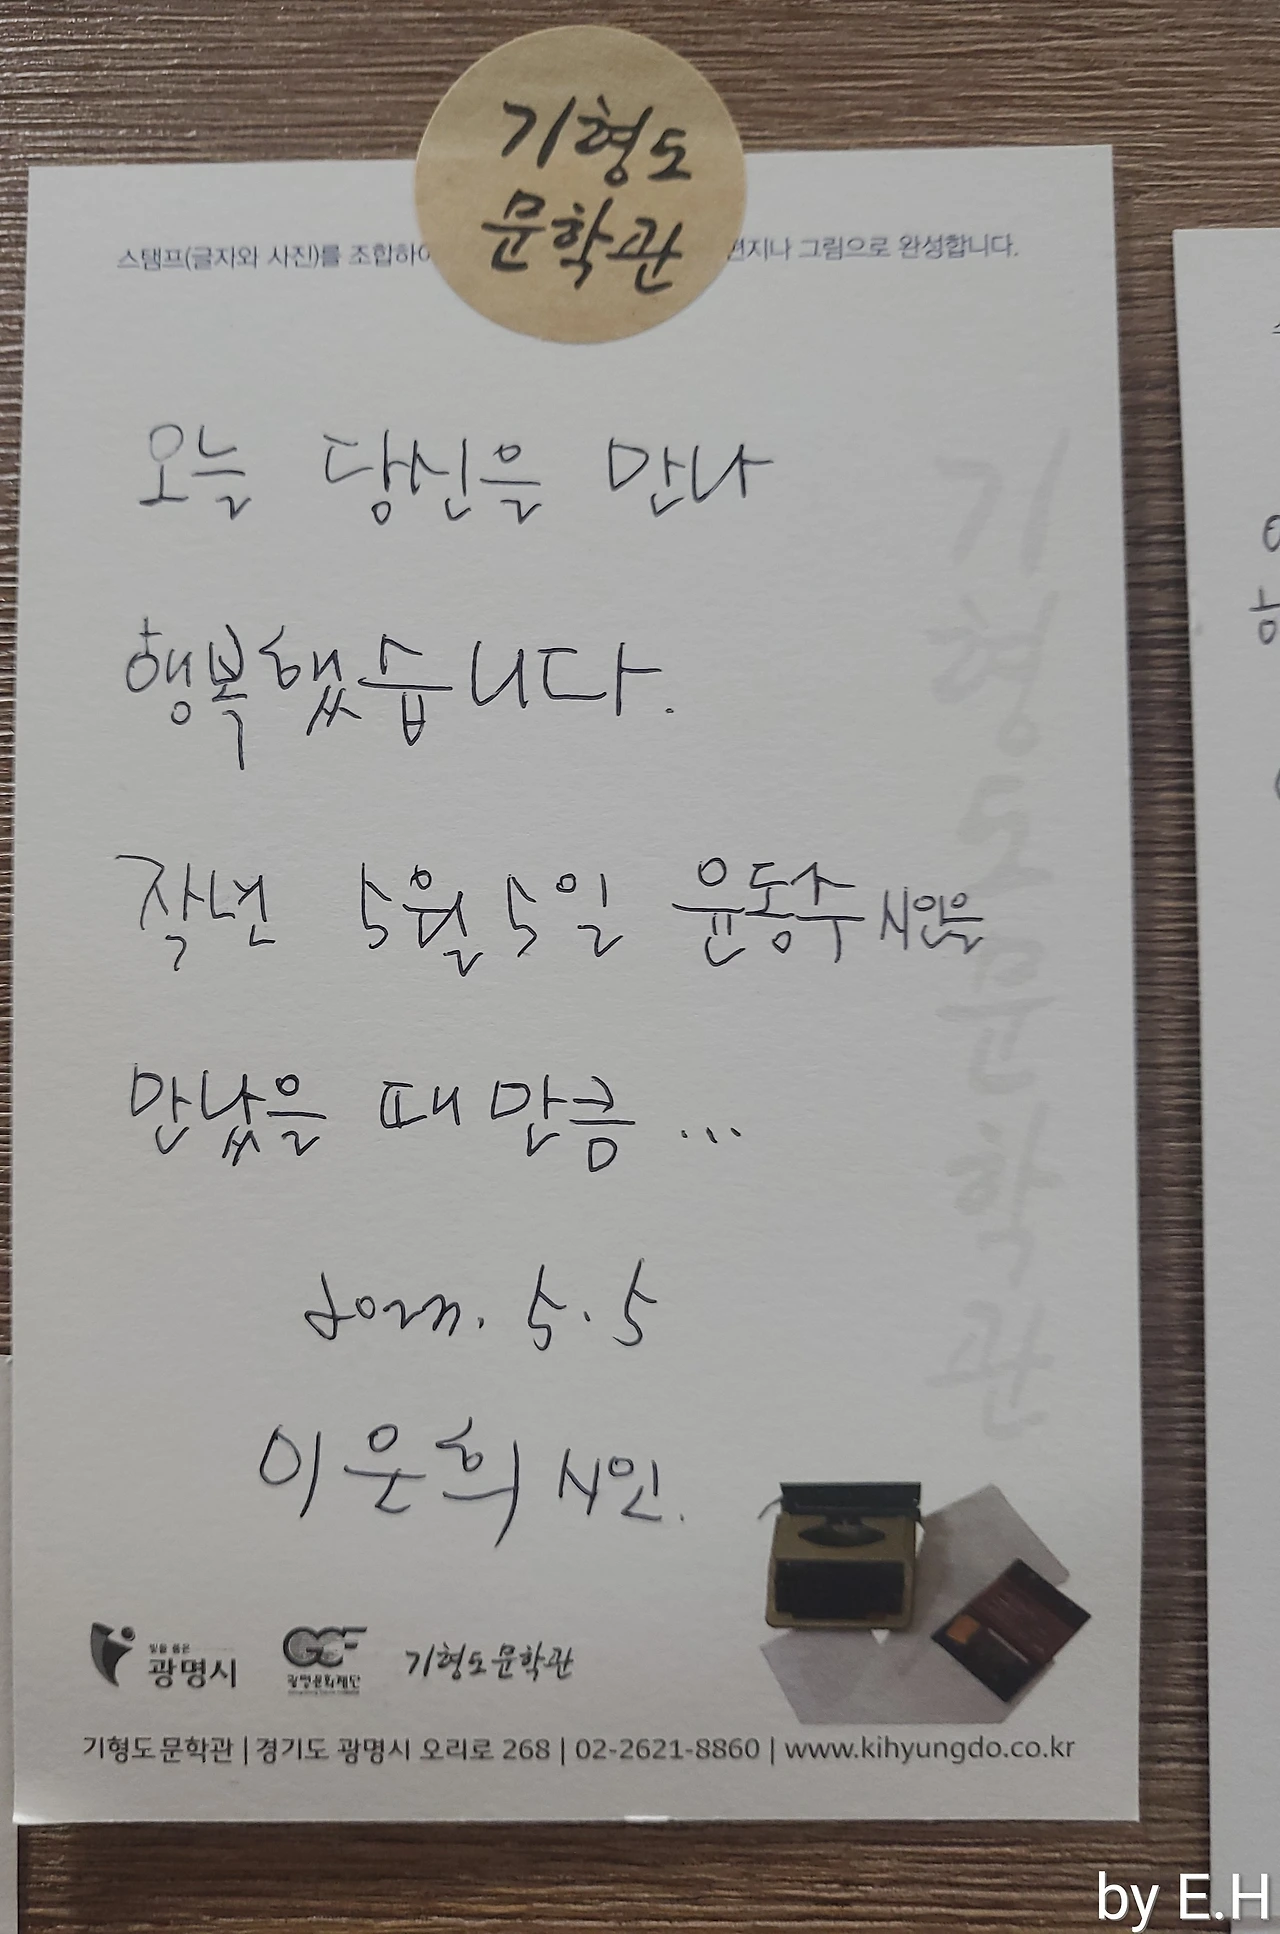 기형도
문학관
스탬프(글자와 사진)를 조합하여 편지나 그림으로 완성합니다.
오늘 당신을 만나
행복했습니다.
작년 5월 5일 윤동주 시인을
만났을 때 만큼...
5.5
이은희 시인.
기형도문학관
빛을 품은
광명시
GCF
광명문화재단
기형도문학관
기형도 문학관 | 경기도 광명시 오리로 268 | 02-2621-8860 | www.kihyungdo.co.kr
by E.H